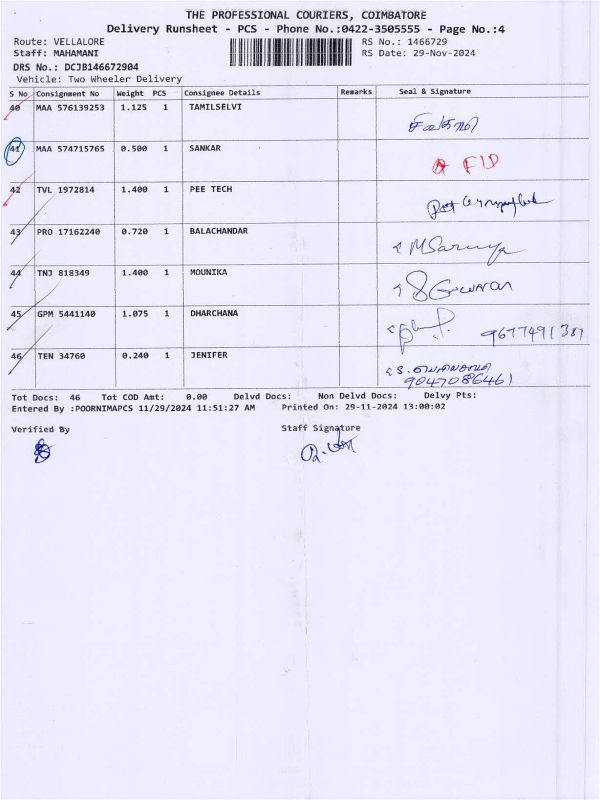 THE PROFESSIONAL COURIERS, COIMBATORE
Delivery Runsheet - PCS - Phone No.:0422-3505555 - Page No.:4
Route: VELLALORE RS No.: 1466729
Staff: MAHAMANI RS Date: 29-Nov-2024
DRS No.: DCJB146672904
Vehicle: Two Wheeler Delivery
S No Consignment No Weight PCS Consignee Details Remarks Seal & Signature
40 MAA 576139253 1.125 1 TAMILSELVI
41 MAA 574715765 0.500 1 SANKAR
42 TVL 1972814 1.400 1 PEE TECH
43 PRO 17162240 0.720 1 BALACHANDAR
44 TNJ 818349 1.400 1 MOUNIKA
45 GPM 5441140 1.075 1 DHARCHANA 9677491381
46 TEN 34760 0.240 1 JENIFER
9047086461
Tot Docs: 46 Tot COD Amt: 0.00 Delvd Docs: Non Delvd Docs: Delvy Pts:
Entered By :POORNIMAPCS 11/29/2024 11:51:27 AM Printed On: 29-11-2024 13:00:02
Verified By Staff Signature